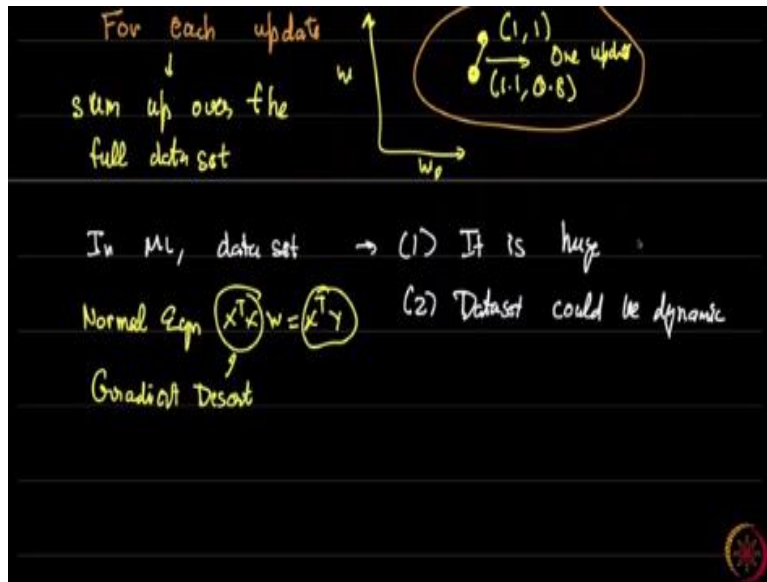 For each update
↓
sum up over the
full data set
w
w₀
(1,1)
→ One update
(1.1, 0.8)
In ML, data set → (1) It is huge
(2) Dataset could be dynamic
Normal Eqn XᵀX w = Xᵀy
Gradient Descent